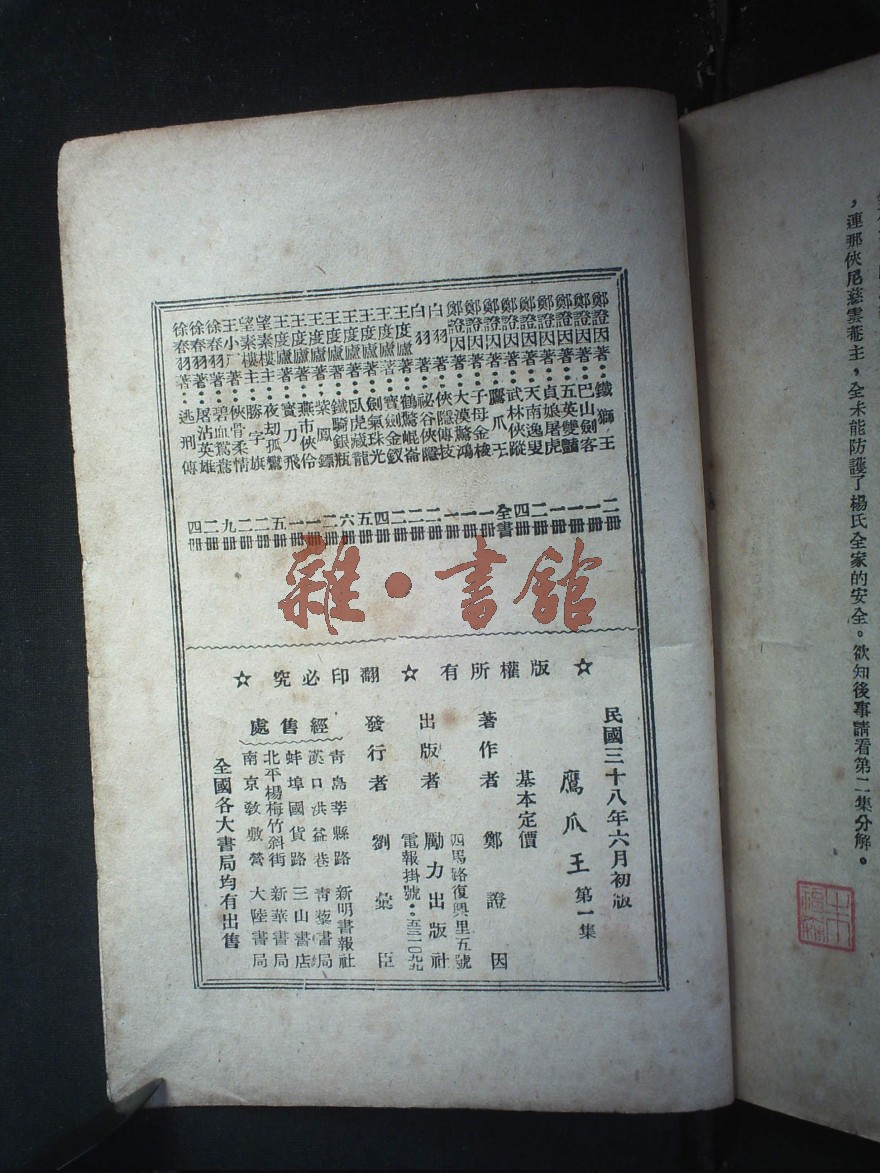 ，連那俠尼慈雲菴主，全未能防護了楊氏全家的安全。欲知後事請看第二集分解。
鄭證因著：鐵獅王 二冊
鄭證因著：巴山劍客 一冊
鄭證因著：五英雙艷 一冊
鄭證因著：貞娘屠虎 一冊
鄭證因著：天南逸叟 二冊
鄭證因著：武林俠蹤 四冊
鄭證因著：鷹爪王 全書
鄭證因著：子母金梭 一冊
鄭證因著：大漠驚鴻 一冊
白羽著：俠隱傳技 一冊
白羽著：祕谷俠隱 二冊
王度廬著：鶴驚崑崙 二冊
王度廬著：寶劍金釵 二冊
王度廬著：劍氣珠光 四冊
王度廬著：臥虎藏龍 五冊
王度廬著：鐵騎銀瓶 六冊
王度廬著：紫鳳鏢 二冊
王度廬著：燕市俠伶 一冊
王度廬著：寶刀飛 一冊
望素樓主：夜劫孤鸞 五冊
望素樓主：勝字旗 二冊
王小厂著：俠骨柔情 二冊
徐春羽著：碧血鴛鴦 九冊
徐春羽著：屠沽英雄 二冊
徐春羽著：逃刑傳 四冊
雜·書館
☆ 版權所有 ☆ 翻印必究 ☆
民國三十八年六月初版
鷹爪王 第一集
基本定價
著作者 鄭證因
四馬路復興里五號
出版者 勵力出版社
電報掛號：五三一〇九九
發行者 劉彙臣
經售處
青島莘縣路 新明書報社
漢口洪益巷 青藜書局
蚌埠國貨路 三山書店
北平楊梅竹斜街 新華書局
南京敎敷營 大陸書局
全國各大書局均有出售